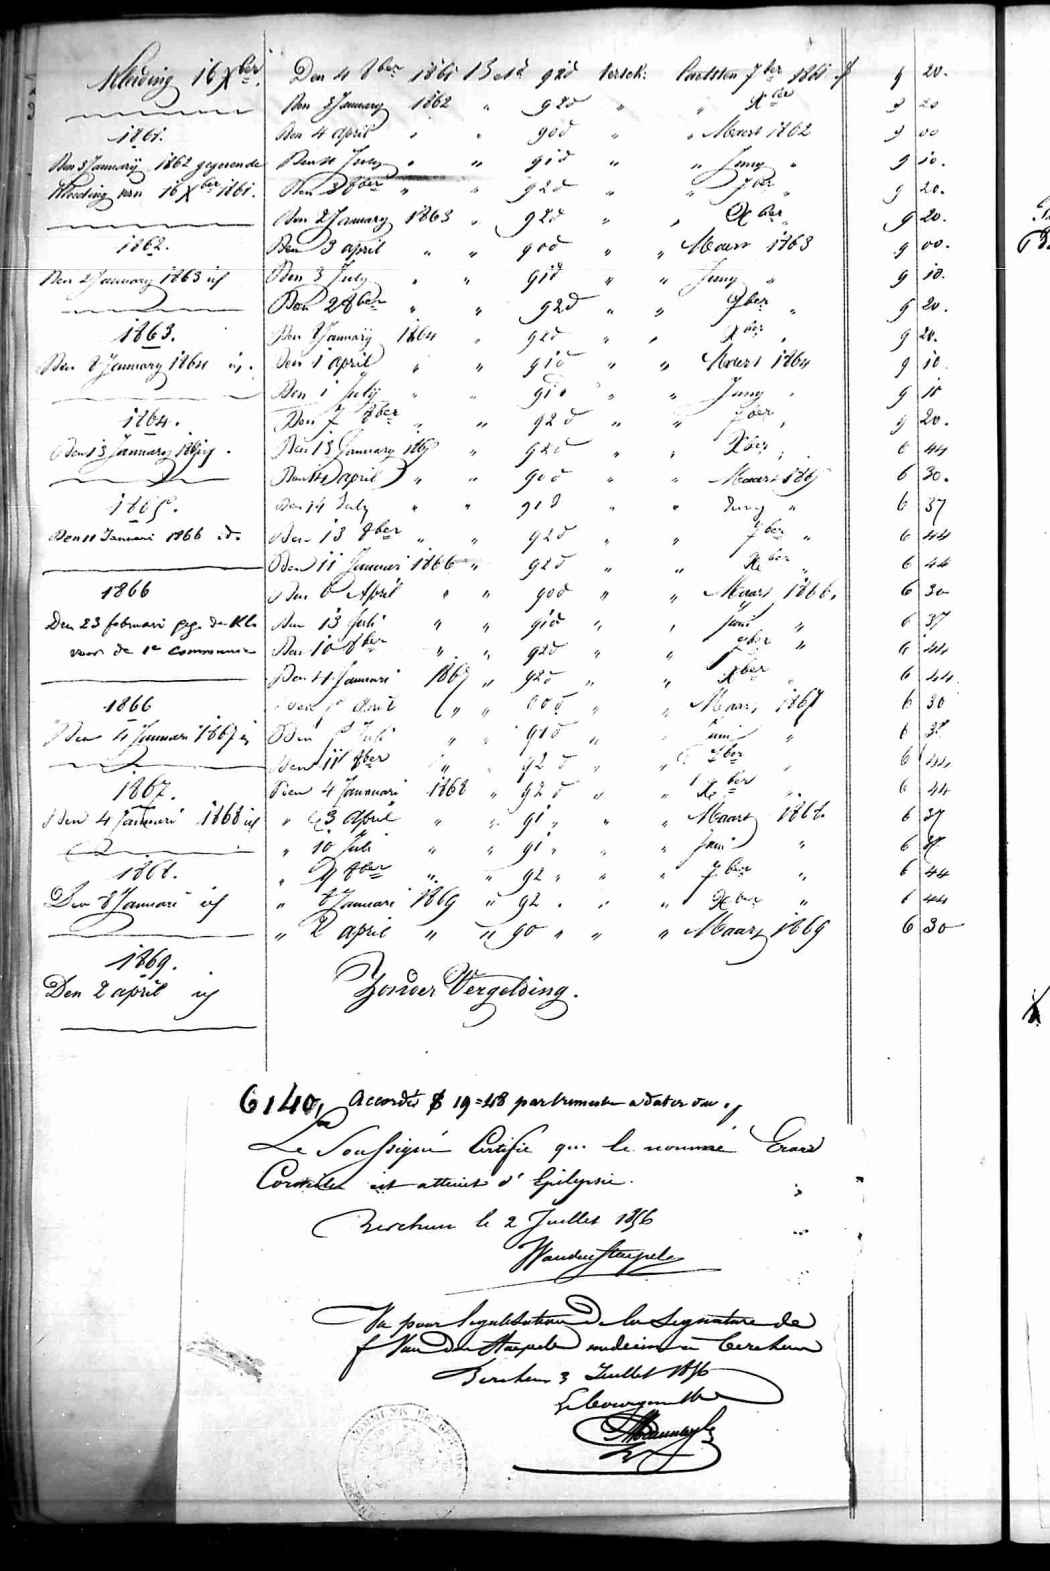 Kleeding 16 Xber
1861.
Den 3 Januarij 1862 gegevende
Kleeding van 16 Xber 1861.
1862.
Den 2 January 1863 id
1863.
Den 8 January 1864 id.
1864.
Den 13 January 1865 id.
1865.
Den 11 Januari 1866 id.
1866
Den 23 februari geg. de Kl.
voor de 1e communie
1866
Den 4 Januari 1867 id
1867.
Den 4 Januari 1868 id
1868.
Den 8 Januari id
1869.
Den 2 april id
Den 4 8ber 1861 92d versch: 7ber 1861 9 20.
Den 3 January 1862 " 92d " " Xber 9 20
Den 4 april " " 90d " " Maart 1862 9 00
Den July " " 91d " " Juny " 9 10.
Den 3 8ber " " 92d " " 7ber " 9 20.
Den 2 January 1863 " 92d " " Xber " 9 20.
Den 3 april " " 90d " " Maart 1863 9 00.
Den 3 July " " 91d " " Juny " 9 10.
Den 2 8ber " " 92d " " 7ber " 9 20.
Den 8 Januarij 1864 " 92d " " Xber " 9 20.
Den 1 april " " 91d " " Maart 1864 9 10
Den 1 July " " 91d " " Juny " 9 10
Den 7 8ber " " 92d " " 7ber " 9 20.
Den 13 January 1865 " 92d " " Xber " 6 44
Den april " " 90d " " Maart 1865 6 30.
Den 14 July " " 91d " " Juny " 6 37
Den 13 8ber " " 92d " " 7ber " 6 44
Den 11 Januari 1866 " 92d " " Xber " 6 44
Den 6 April " " 90d " " Maart 1866. 6 30
Den 13 Juli " " 91d " " Juni " 6 37
Den 10 8ber " " 92d " " 7ber " 6 44
Den 4 Januari 1867 " 92d " " Xber " 6 44
Den april " " 90d " " Maart 1867 6 30
Den Juli " " 91d " " Juni " 6 37
Den 11 8ber " " 92d " " 7ber " 6 44
Den 4 Januari 1868 " 92d " " Xber " 6 44
" 3 april " " 91 " " " Maart 1868. 6 37
" 10 Juli " " 91 " " " Juni " 6 37
" 9 8ber " " 92 " " " 7ber " 6 44
" 8 Januari 1869 " 92 " " " Xber " 6 44
" 2 april " " 90 " " " Maart 1869 6 30
Zonder Vergelding.
6140, accordé 19=48 par trimestre a dater du
Le Soussigné Certifie que le nommé
est atteint d'Epilepsie.
Berchem le 2 Juillet 1856
Vander Stappele
Vu pour legalisation de la signature de
f Van der Stappele medecin a berchem
Berchem 3 Juillet 1856
Le bourgmestre